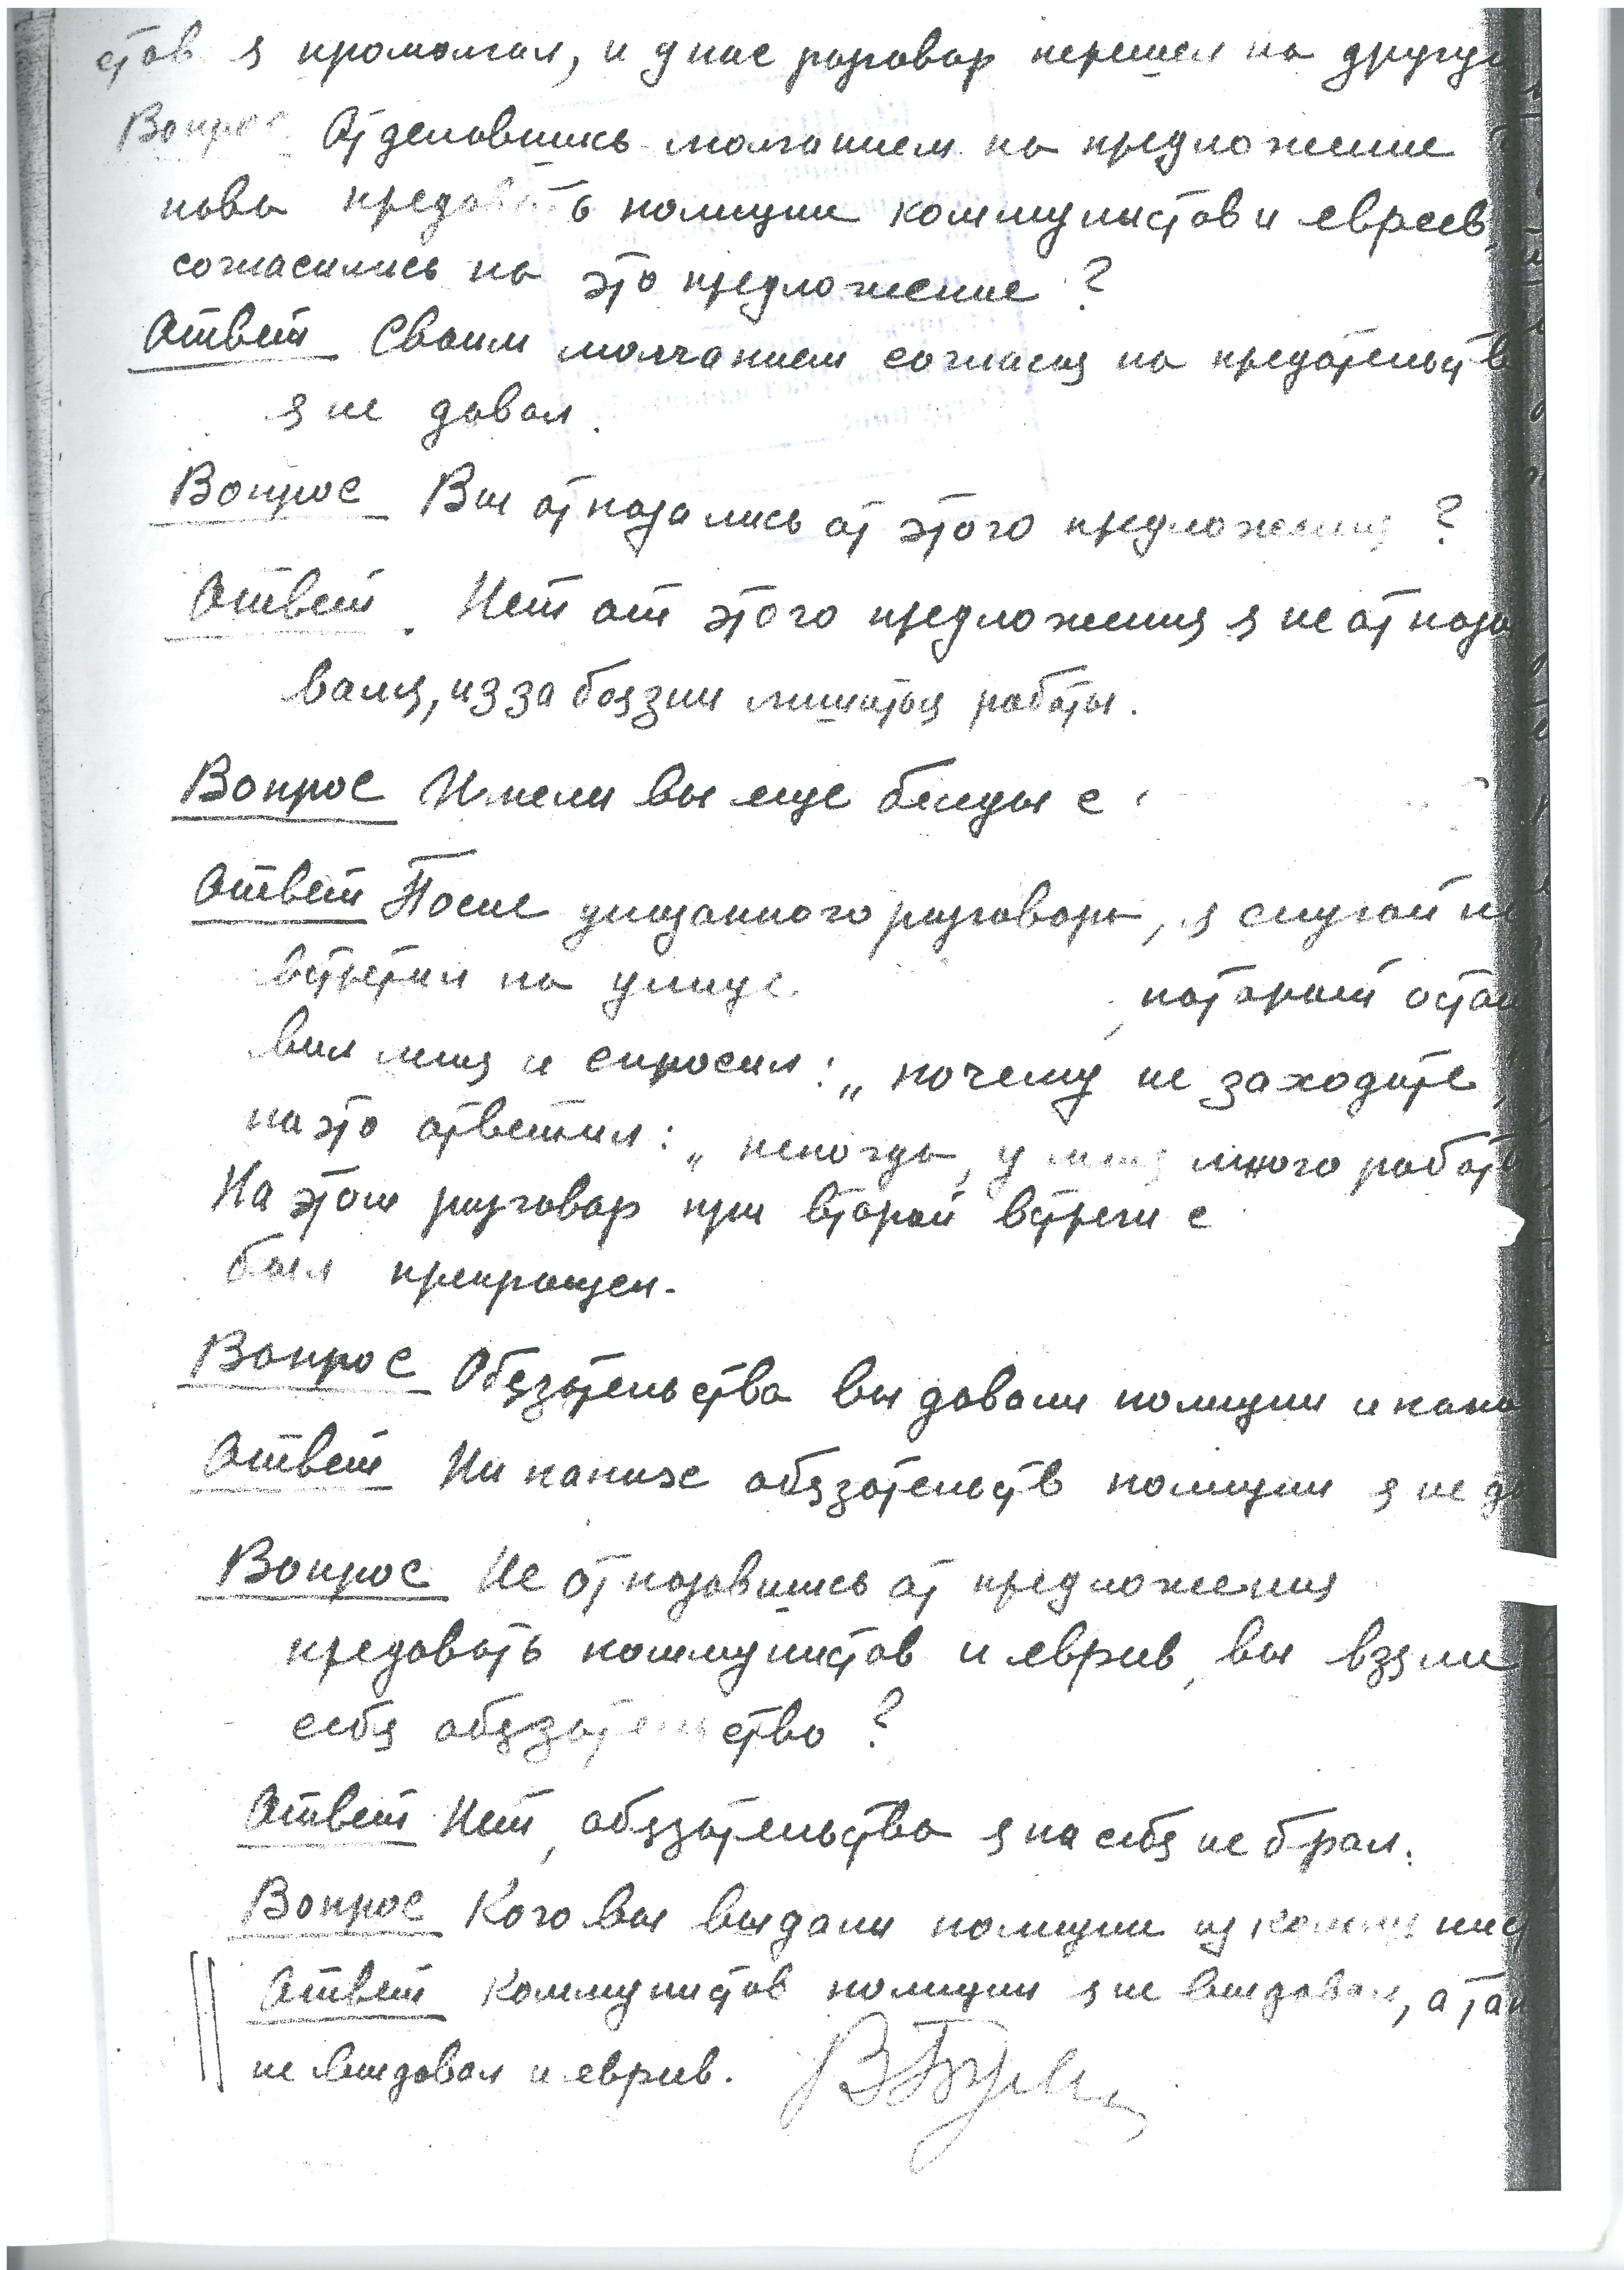 стов я промолчал, и у нас разговор перешел на другу
Вопрос Отделовшись молчанием на предложение
нова предавать полиции коммунистов и евреев,
согласились на это предложение?
Ответ Своим молчанием согласия на предательств
я не давал.
Вопрос Вы отказались от этого предложения?
Ответ. Нет от этого предложения я не отказы
вался, из за боязни лишиться работы.
Вопрос Имели вы еще беседы с
Ответ После указанного разговора, я случайно
встретил на улице , который остан
вил меня и спросил: „почему не заходите,
на это ответил: „некогда, у меня много работы
На этом разговор при второй встречи с
был прекращен.
Вопрос Обязательства вы давали полиции и како
Ответ Ни каких обязательств полиции я не да
Вопрос Не отказавшись от предложения
предавать коммунистов и еврив, вы взяли
себя обязательство?
Ответ Нет, обязательства я на себя не брал.
Вопрос Кого вы выдали полиции из коммунис
Ответ Коммунистов полиции я не выдавал, а так
не выдавал и еврив.